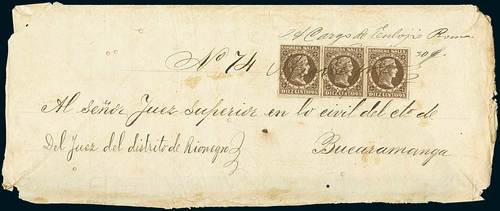 A Cargo de Eulogio Roma
No 74
CORREOS NALES.
DIEZ CENTAVOS
CORREOS NALES.
DIEZ CENTAVOS
CORREOS NALES.
DIEZ CENTAVOS
Al señor Juez Superior en lo civil del cto de
Del Juez del distrito de Rionegro
Bucaramanga